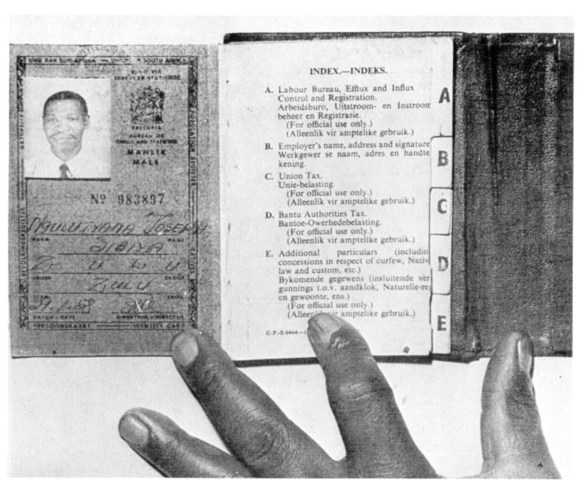 UNIE VAN SUID-AFRIKA
SOUTH AFRICA
PRETORIA
BUREAU OF
MANLIK
MALE
Nº 983897
JOSEPH
NAME
ZULU
IDENTITY CARD
INDEX.—INDEKS.
A. Labour Bureau, Efflux and Influx
Control and Registration.
Arbeidsburo, Uitstroom- en Instroom
beheer en Registrasie.
(For official use only.)
(Alleenlik vir amptelike gebruik.)
B. Employer's name, address and signature
Werkgewer se naam, adres en handte
kening.
C. Union Tax.
Unie-belasting.
(For official use only.)
(Alleenlik vir amptelike gebruik.)
D. Bantu Authorities Tax.
Bantoe-Owerhedebelasting.
(For official use only.)
(Alleenlik vir amptelike gebruik.)
E. Additional particulars (includin
concessions in respect of curfew, Nativ
law and custom, etc.)
Bykomende gegewens (insluitende ver
gunnings t.o.v. aandklok, Naturelle-re
en gewoonte, ens.)
(For official use only.)
(Alleenlik vir amptelike gebruik.)
A
B
C
D
E